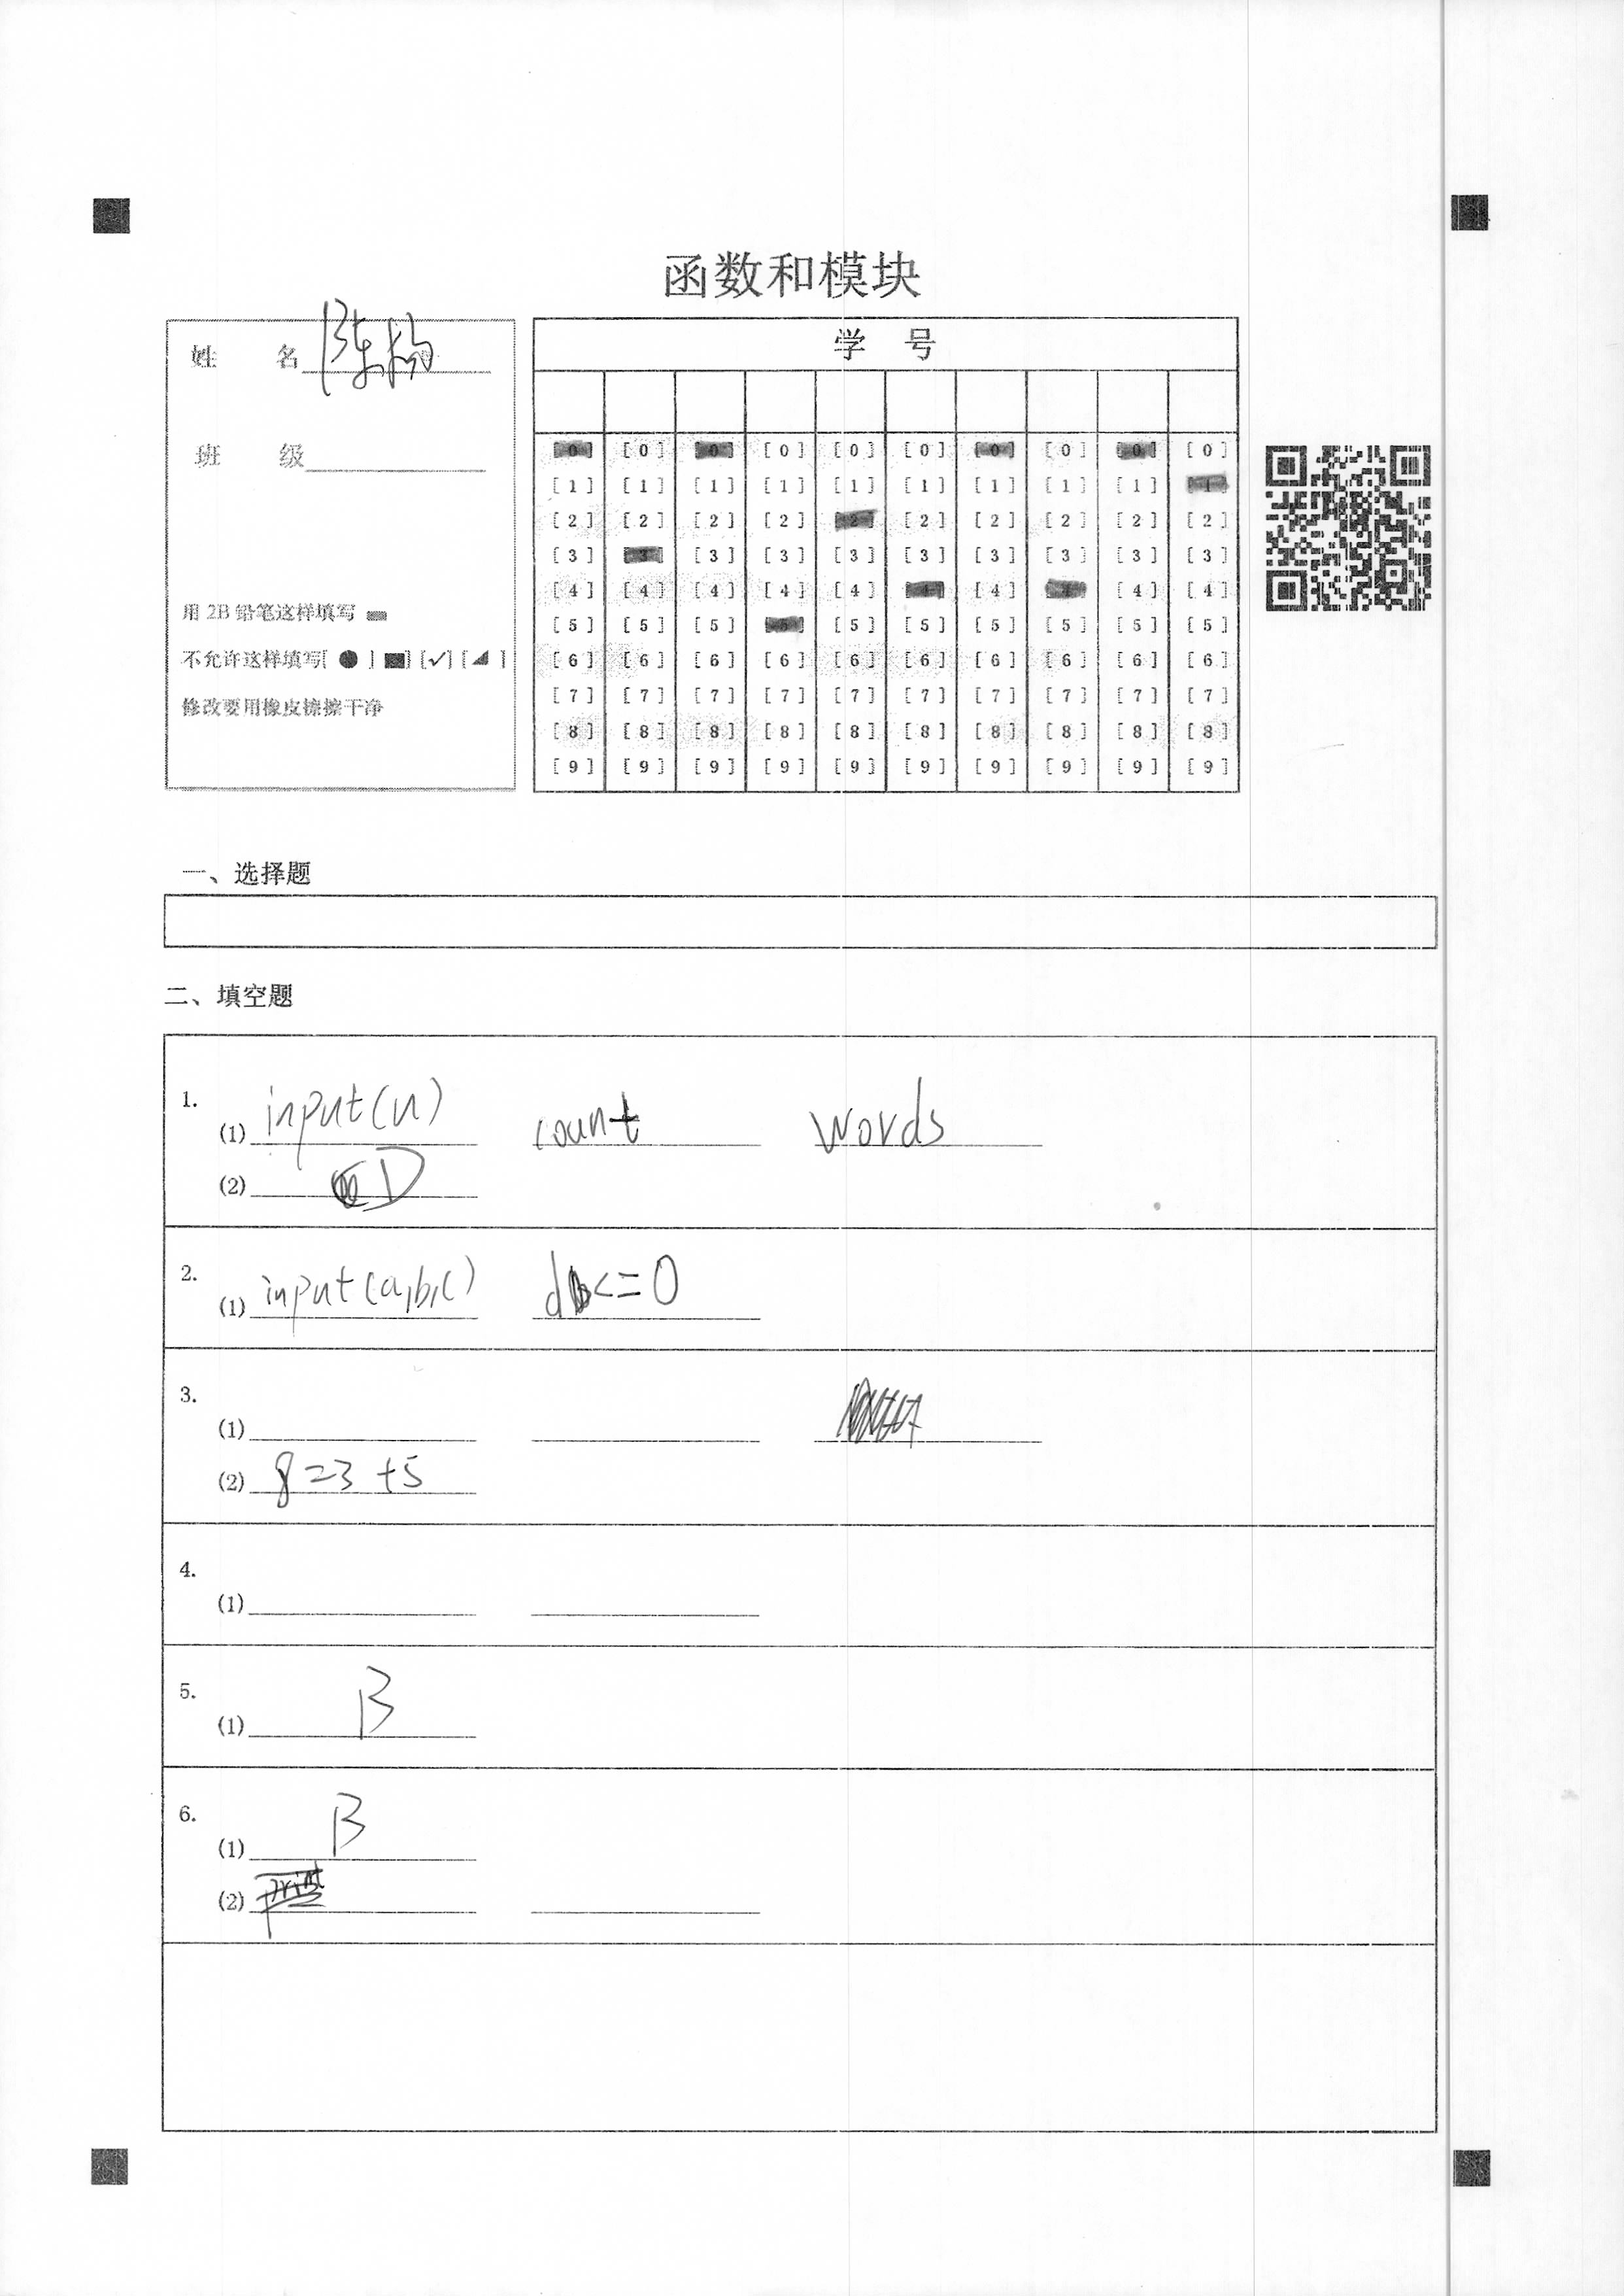 函数和模块
姓 名 陈杨
班 级
用 2B 铅笔这样填写
不允许这样填写[ ● ] [■] [✓] [◢ ]
修改要用橡皮擦擦干净
学 号
[0] [0] [0] [0] [0] [0] [0] [0] [0] [0]
[1] [1] [1] [1] [1] [1] [1] [1] [1] [1]
[2] [2] [2] [2] [2] [2] [2] [2] [2] [2]
[3] [3] [3] [3] [3] [3] [3] [3] [3] [3]
[4] [4] [4] [4] [4] [4] [4] [4] [4] [4]
[5] [5] [5] [5] [5] [5] [5] [5] [5] [5]
[6] [6] [6] [6] [6] [6] [6] [6] [6] [6]
[7] [7] [7] [7] [7] [7] [7] [7] [7] [7]
[8] [8] [8] [8] [8] [8] [8] [8] [8] [8]
[9] [9] [9] [9] [9] [9] [9] [9] [9] [9]
一、选择题
二、填空题
1.
(1) input(n) count words
(2) D
2.
(1) input(a,b,c) d<=0
3.
(1)
(2) 8=3+5
4.
(1)
5.
(1) B
6.
(1) B
(2)